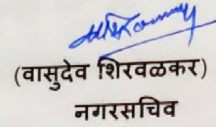 (वासुदेव शिरवळकर)
नगरसचिव